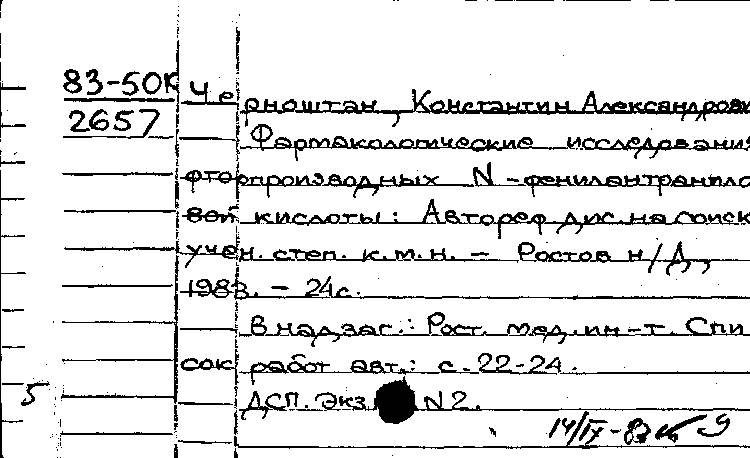 83-50К
2657
Черноштан, Константин Александрови
Фармакологические исследования
фторпроизводных N-фенилантранило
вой кислоты: Автореф. дис. на соиск.
учен. степ. к.м.н. – Ростов н/Д,
1983. – 24с.
В надзаг.: Рост. мед. ин-т. Спи
сок работ авт.: с. 22-24.
ДСП. Экз N2.
5
14/IX-83